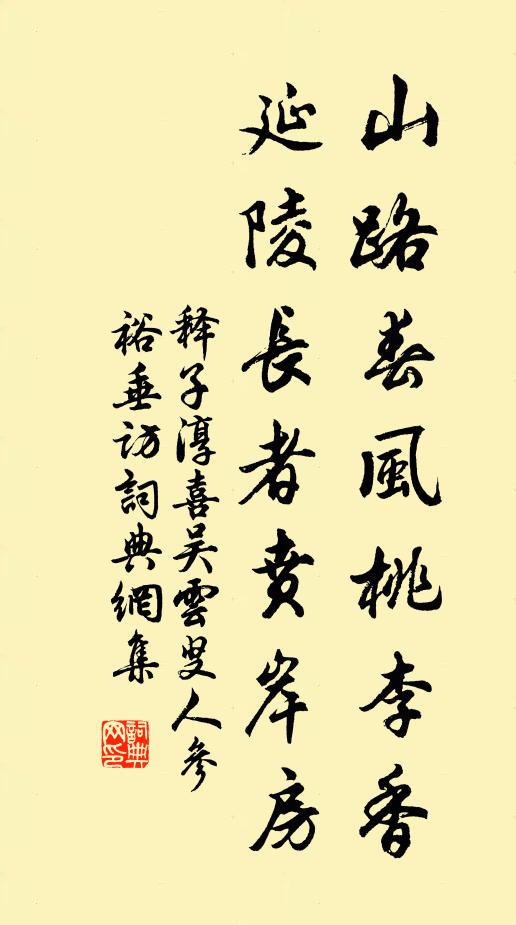 山路春風桃李香
延陵長者賁岸房
释子淳喜吴雲叟人參
裕垂访詞典網集
詞典